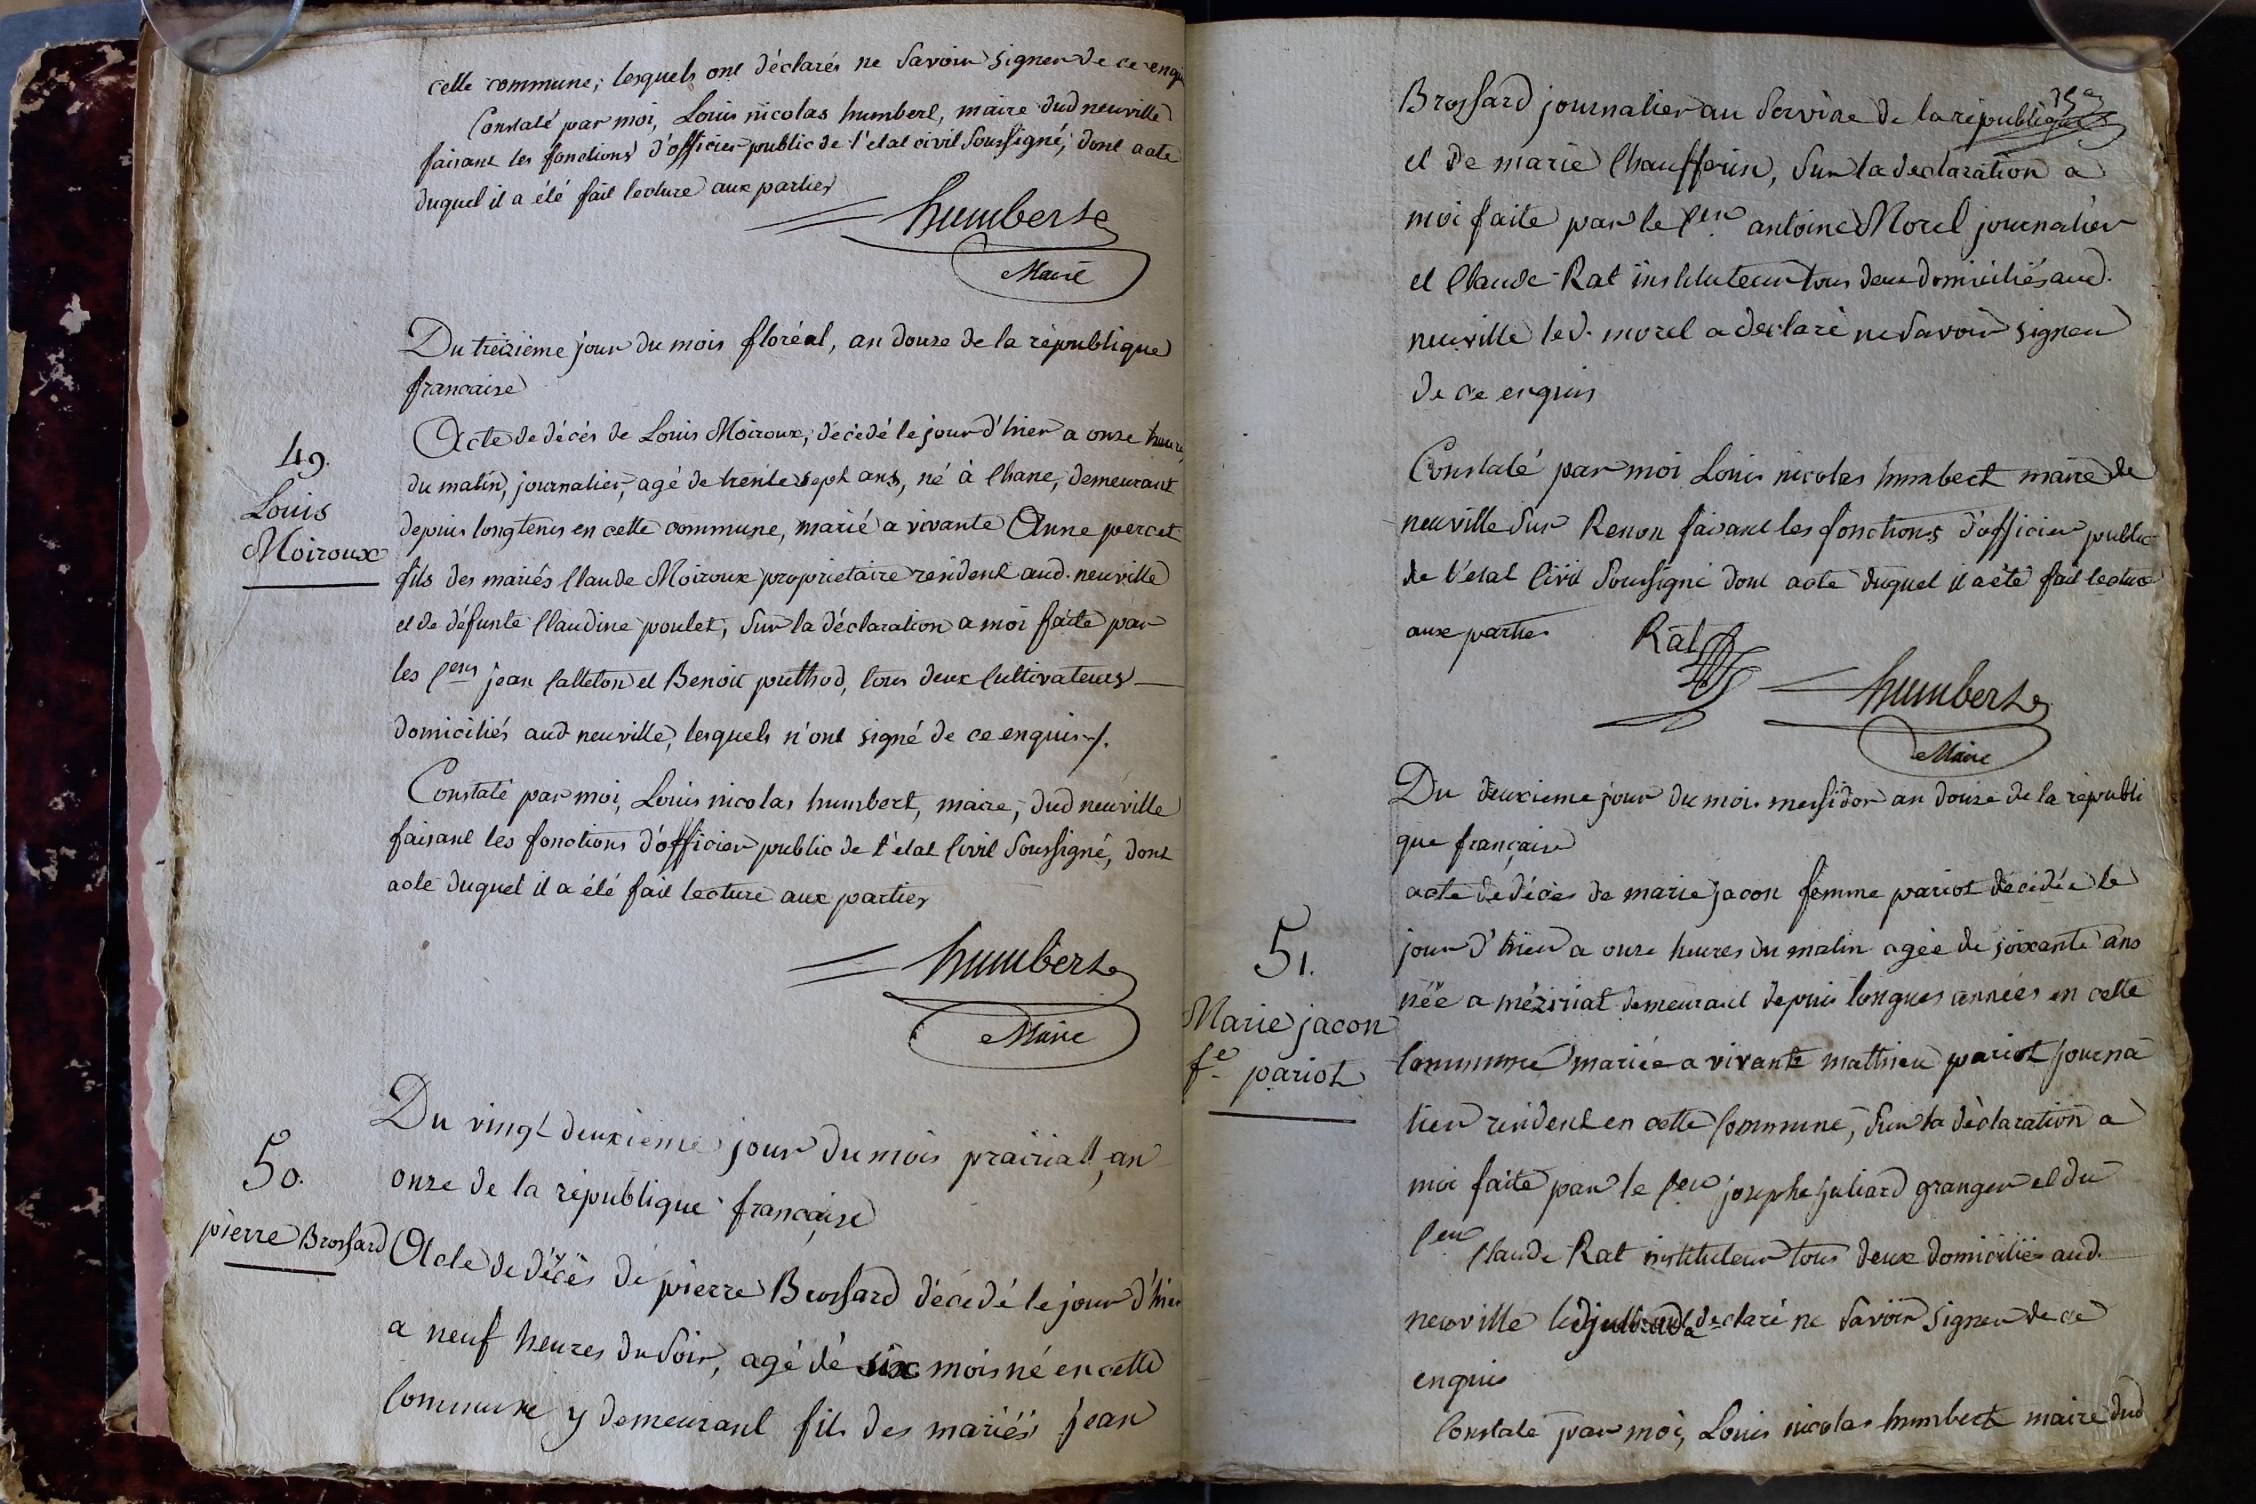 cette commune; lesquels ont déclarés ne savoir signer de ce enquis
Constaté par moi, Louis nicolas humbert, maire dud neuville
faisant les fonctions d'officier public de l'état civil soussigné, dont acte
duquel il a été fait lecture aux parties
humbert
Maire
Du treizieme jour du mois floréal, an douze de la république
francaise
Acte de décés de Louis Moiroux, décédé le jour d'hier a onze heures
49.
Louis
Moiroux
du matin, journalier, agé de trente sept ans, né à Chane, demeurant
depuis longtems en cette commune, marié a vivante Anne percet
fils des mariés Claude Moiroux propriétaire résident aud. neuville
et de défunte Claudine poulet, sur la déclaration a moi faite par
les Cens jean Calleton et Benoit puthod, tous deux Cultivateurs
domiciliés aud neuville, lesquels n'ont signé de ce enquis /.
Constaté par moi, Louis nicolas humbert, maire, dud neuville
faisant les fonctions d'officier public de l'état Civil soussigné, dont
acte duquel il a été fait lecture aux parties
humbert
Maire
Du vingt deuxieme jour du mois prairial, an
onze de la république francaise
50.
pierre Brossard
Acte de décès de pierre Brossard décédé le jour d'hier
a neuf heures du soir, agé de six mois né en cette
Commune y demeurant fils des mariés jean
Brossard journalier au service de la république
et de marie Chaufferin, sur la declaration a
moi faite par le Cen antoine Morel journalier
et Claude Rat instituteur tous deux domiciliés aud.
neuville led. morel a declaré ne savoir signer
de ce enquis
Constaté par moi Louis nicolas humbert maire de
neuville sur Renon faisant les fonctions d'officier public
de l'etat Civil soussigné dont acte duquel il a été fait lecture
aux parties
Rat
humbert
Maire
Du deuxieme jour du mois messidor an douze de la républi
que française
acte de décès de marie jacon femme pariot décédée le
51.
Marie jacon
fe pariot
jour d'hier a onze heures du matin agée de soixante ans
née a méziriat demeurant depuis longues années en cette
Commune mariée a vivante mathieu pariot journa
lier résident en cette Commune, sur la déclaration a
moi faite par le Cen josephe juliard granger et du
Cen Claude Rat instituteur tous deux domiciliés aud.
neuville led juliard a declaré ne savoir signer de ce
enquis
Constaté par moi, Louis nicolas humbert maire dud